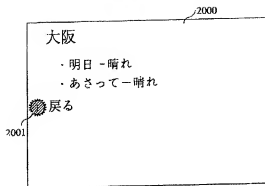 2000
大阪
・明日－晴れ
・あさって－晴れ
戻る
2001